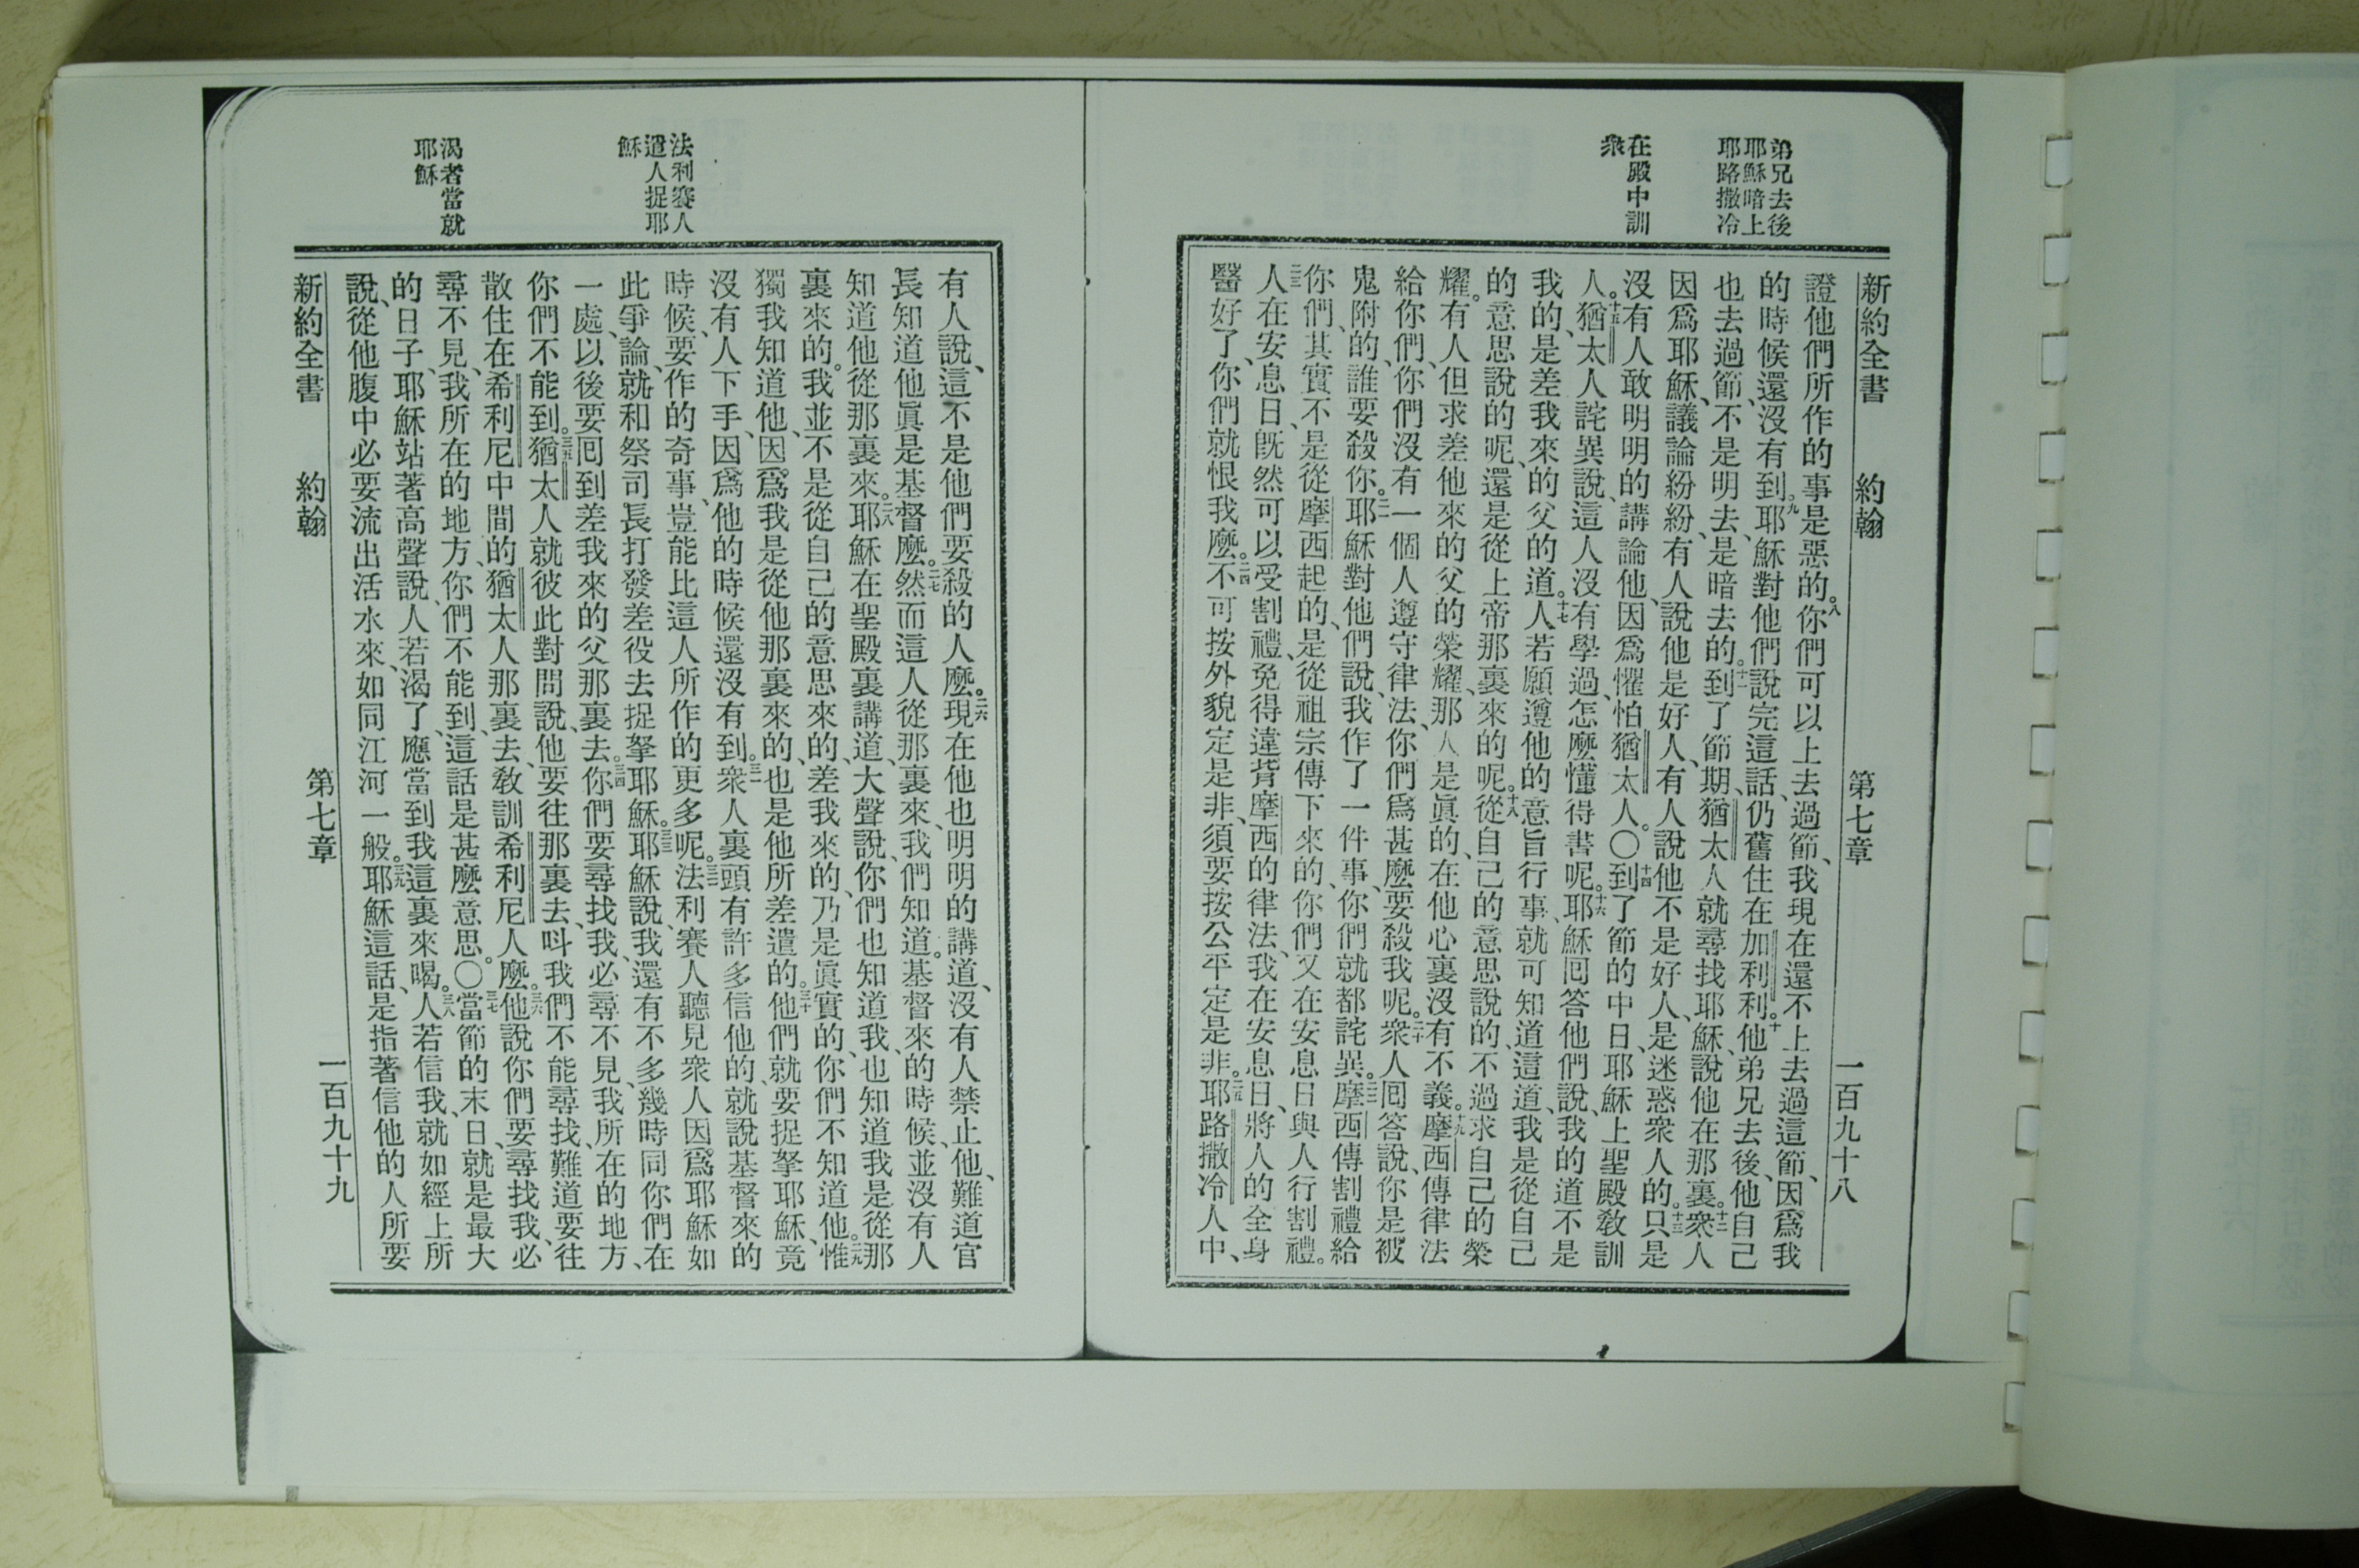 弟兄去後
耶穌暗上
耶路撒冷
在殿中訓
衆
新約全書 約翰 第七章 一百九十八
證他們所作的事是惡的。八你們可以上去過節、我現在還不上去過這節、因爲我
的時候還沒有到。九耶穌對他們說完這話、仍舊住在加利利。十他弟兄去後、他自己
也去過節、不是明去、是暗去的。十一到了節期、猶太人就尋找耶穌、說他在那裏。十二衆人
因爲耶穌、議論紛紛、有人說他是好人、有人說他不是好人、是迷惑衆人的。十三只是
沒有人敢明明的講論他、因爲懼怕猶太人。〇十四到了節的中日、耶穌上聖殿教訓
人。十五猶太人詫異說、這人沒有學過、怎麽懂得書呢。十六耶穌囘答他們說、我的道不是
我的、是差我來的父的道。十七人若願遵他的意旨行事、就可知道這道、我是從自己
的意思說的呢、還是從上帝那裏來的呢。十八從自己的意思說的、不過求自己的榮
耀。有人但求差他來的父的榮耀、那人是眞的、在他心裏沒有不義。十九摩西傳律法
給你們、你們沒有一個人遵守律法、你們爲甚麽要殺我呢。二十衆人囘答說、你是被
鬼附的、誰要殺你。二一耶穌對他們說、我作了一件事、你們就都詫異。二二摩西傳割禮給
你們、其實不是從摩西起的、是從祖宗傳下來的、你們又在安息日與人行割禮。
二三人在安息日、旣然可以受割禮、免得違背摩西的律法、我在安息日、將人的全身
醫好了、你們就恨我麽。二四不可按外貌定是非、須要按公平定是非。二五耶路撒冷人中、
法利賽人
遣人捉耶
穌
渴者當就
耶穌
有人說、這不是他們要殺的人麽。二六現在他也明明的講道、沒有人禁止他、難道官
長知道他眞是基督麽。二七然而這人從那裏來、我們知道。基督來的時候、並沒有人
知道他從那裏來。二八耶穌在聖殿裏講道、大聲說、你們也知道我、也知道我是從那
裏來的。我並不是從自己的意思來的、差我來的、乃是眞實的、你們不知道他。二九惟
獨我知道他、因爲我是從他那裏來的、也是他所差遣的。三十他們就要捉拏耶穌、竟
沒有人下手、因爲他的時候還沒有到。三一衆人裏頭有許多信他的、就說基督來的
時候、要作的奇事、豈能比這人所作的更多呢。三二法利賽人聽見衆人因爲耶穌如
此爭論、就和祭司長打發差役去捉拏耶穌。三三耶穌說、我還有不多幾時同你們在
一處、以後要囘到差我來的父那裏去。三四你們要尋找我、必尋不見、我所在的地方、
你們不能到。三五猶太人就彼此對問說、他要往那裏去、呌我們不能尋找、難道要往
散住在希利尼中間的猶太人那裏去、教訓希利尼人麽。三六他說你們要尋找我、必
尋不見、我所在的地方、你們不能到、這話是甚麽意思。〇三七當節的末日、就是最大
的日子、耶穌站著高聲說、人若渴了、應當到我這裏來喝。三八人若信我、就如經上所
說、從他腹中必要流出活水來、如同江河一般。三九耶穌這話、是指著信他的人所要
新約全書 約翰 第七章 一百九十九